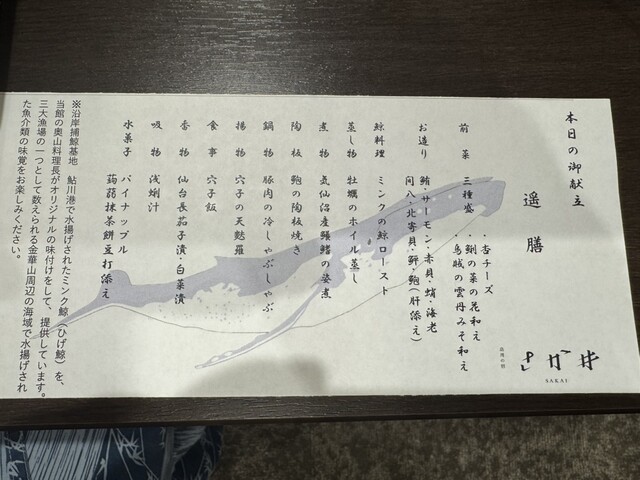 本日の御献立
遥膳
さか井
SAKAI
前菜 三種盛
・杏チーズ
・鯛の菜の花和え
・烏賊の雲丹みそ和え
お造り 鮪・サーモン・赤貝・蛸・海老
間八・北寄貝・鮃・鮑(肝添え)
鯨料理 ミンクの鯨ロースト
蒸し物 牡蠣のホイル蒸し
煮物 気仙沼産鱶鰭の姿煮
陶板 鮑の陶板焼き
鍋物 豚肉の冷しゃぶしゃぶ
揚物 穴子の天麩羅
食事 穴子飯
香物 仙台長茄子漬・白菜漬
吸物 浅蜊汁
水菓子 パイナップル
蒟蒻抹茶餅豆打添え
※沿岸捕鯨基地 鮎川港で水揚げされたミンク鯨(ひげ鯨)を、
当館の奥山料理長がオリジナルの味付けをして、提供しています。
三大漁場の一つとして数えられる金華山周辺の海域で水揚げされ
た魚介類の味覚をお楽しみください。